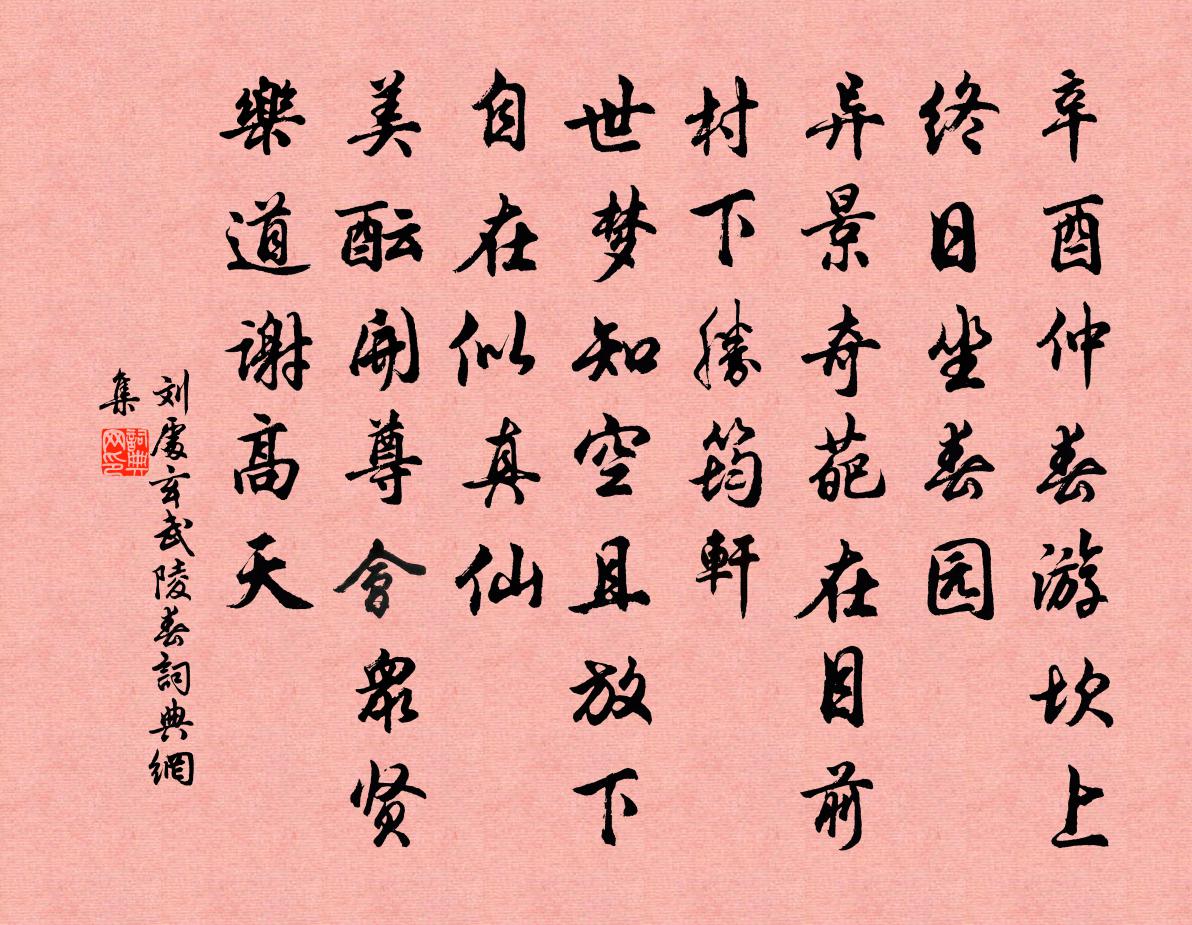 辛酉仲春游坎上
终日坐春园
异景奇葩在目前
村下勝筠軒
世梦知空且放下
自在似真仙
美酝開尊會衆贤
樂道谢高天
刘處玄武陵春詞典網
集
詞典网印